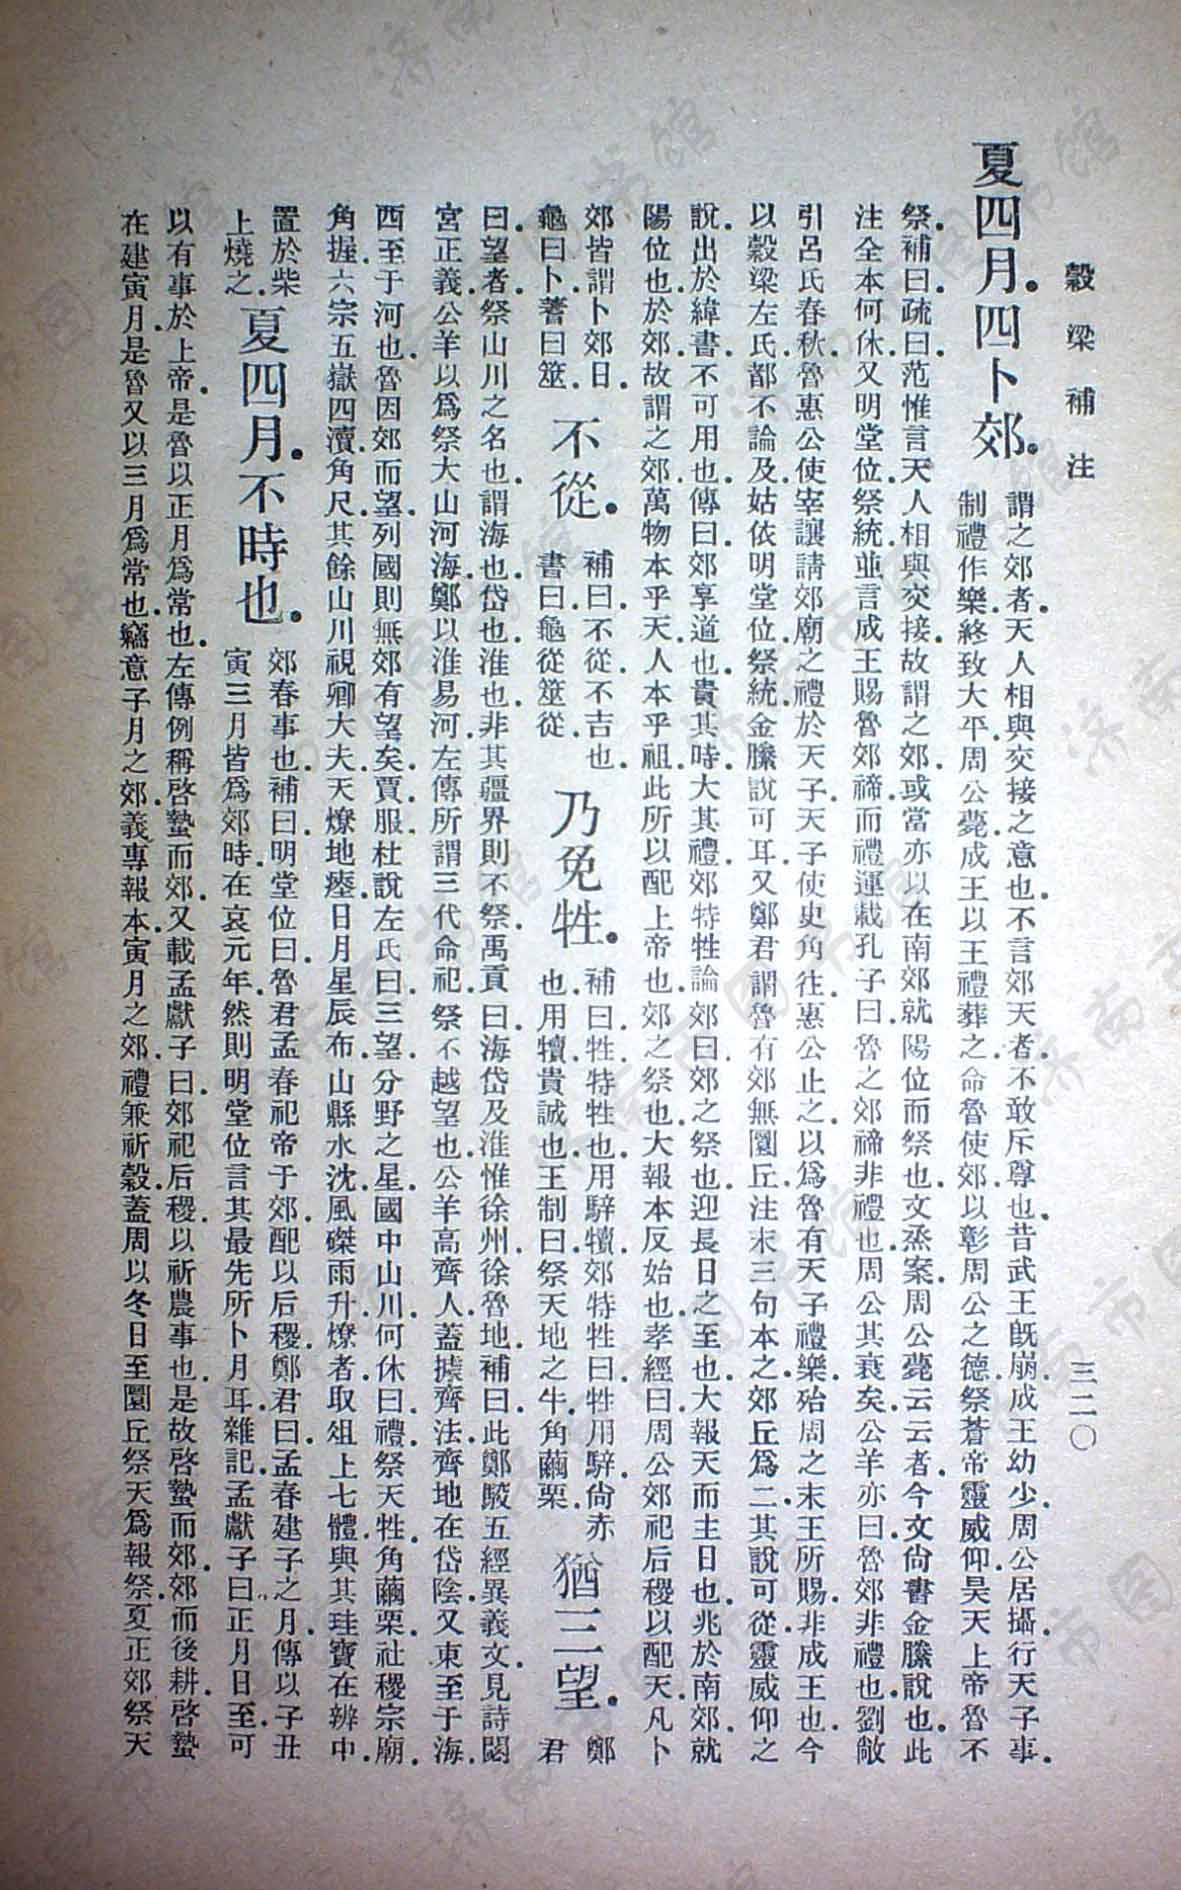 穀梁補注
三二〇
夏四月。四卜郊。
謂之郊者。天人相與交接之意也。不言郊天者。不敢斥尊也。昔武王既崩。成王幼少。周公居攝。行天子事。
制禮作樂。終致大平。周公薨。成王以王禮葬之。命魯使郊。以彰周公之德。祭蒼帝靈威仰。昊天上帝。魯不
祭。補曰。疏曰。范惟言天人相與交接。故謂之郊。或當亦以在南郊就陽位而祭也。文烝案。周公薨云云者。今文尚書金縢說也。此
注全本何休。又明堂位。祭統並言成王賜魯郊禘。而禮運載孔子曰。魯之郊禘非禮也。周公其衰矣。公羊亦曰。魯郊非禮也。劉敞
引呂氏春秋。魯惠公使宰讓請郊廟之禮於天子。天子使史角往。惠公止之。以爲魯有天子禮樂。殆周之末王所賜。非成王也。今
以穀梁左氏都不論及。姑依明堂位。祭統。金縢說可耳。又鄭君謂魯有郊無圜丘。注末三句本之。郊丘爲二。其說可從。靈威仰之
說。出於緯書。不可用也。傳曰。郊享道也。貴其時。大其禮。郊特牲論郊曰。郊之祭也。迎長日之至也。大報天而主日也。兆於南郊。就
陽位也。於郊。故謂之郊。萬物本乎天。人本乎祖。此所以配上帝也。郊之祭也。大報本反始也。孝經曰。周公郊祀后稷以配天。凡卜
郊皆謂卜郊日。
龜曰卜。蓍曰筮。
不從。
補曰。不從。不吉也。
書曰。龜從筮從。
乃免牲。
補曰。牲特牲也。用騂犢。郊特牲曰。牲用騂。尚赤
也。用犢。貴誠也。王制曰。祭天地之牛。角繭栗。
猶三望。
鄭
君
曰。望者。祭山川之名也。謂海也。岱也。淮也。非其疆界則不祭。禹貢曰。海岱及淮惟徐州。徐。魯地。補曰。此鄭駮五經異義文。見詩閟
宮正義。公羊以爲祭大山河海。鄭以淮易河。左傳所謂三代命祀。祭不越望也。公羊高齊人。蓋據齊法。齊地在岱陰。又東至于海。
西至于河也。魯因郊而望。列國則無郊有望矣。賈。服。杜說左氏曰。三望。分野之星。國中山川。何休曰。禮。祭天牲。角繭栗。社稷宗廟。
角握。六宗五嶽四瀆。角尺。其餘山川視卿大夫。天燎地瘞。日月星辰布。山縣水沈。風磔雨升。燎者。取俎上七體。與其珪寶在辨中。
置於柴
上燒之。
夏四月。不時也。
郊春事也。補曰。明堂位曰。魯君孟春祀帝于郊。配以后稷。鄭君曰。孟春建子之月。傳以子丑
寅三月皆爲郊時。在哀元年。然則明堂位言其最先所卜月耳。雜記。孟獻子曰。正月日至。可
以有事於上帝。是魯以正月爲常也。左傳例稱啓蟄而郊。又載孟獻子曰。郊祀后稷。以祈農事也。是故啓蟄而郊。郊而後耕。啓蟄
在建寅月。是魯又以三月爲常也。竊意子月之郊。義專報本。寅月之郊。禮兼祈穀。蓋周以冬日至圜丘祭天爲報祭。夏正郊祭天